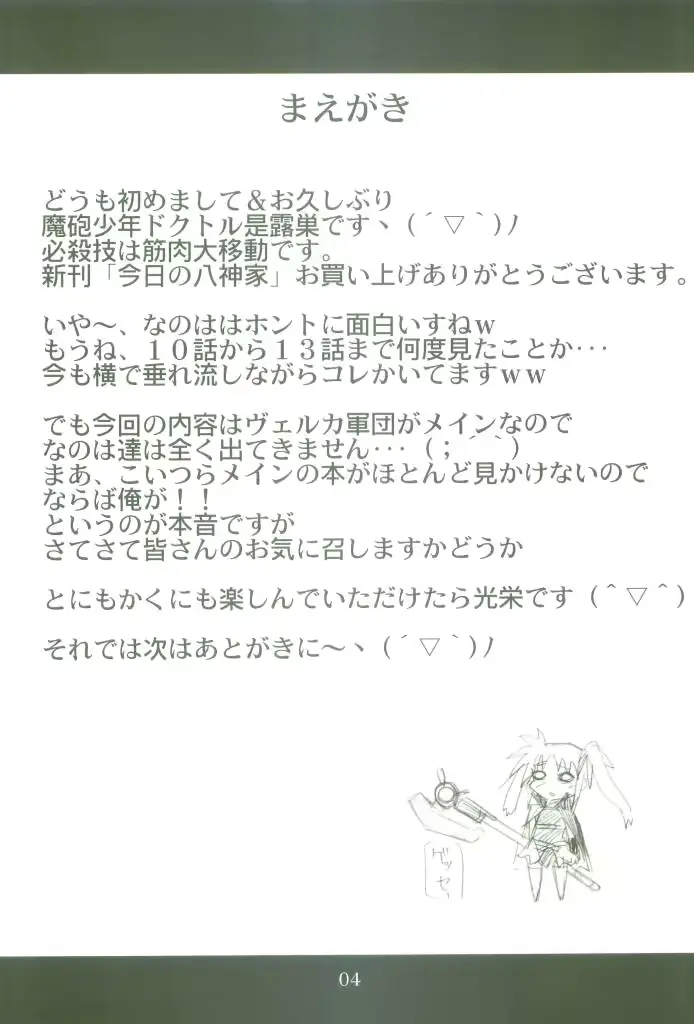 まえがき
どうも初めまして＆お久しぶり
魔砲少年ドクトル是露巣ですヽ(´▽｀)ﾉ
必殺技は筋肉大移動です。
新刊「今日の八神家」お買い上げありがとうございます。
いや～、なのははホントに面白いすねｗ
もうね、１０話から１３話まで何度見たことか･･･
今も横で垂れ流しながらコレかいてますｗｗ
でも今回の内容はヴェルカ軍団がメインなので
なのは達は全く出てきません･･･（；´＾｀）
まあ、こいつらメインの本がほとんど見かけないので
ならば俺が！！
というのが本音ですが
さてさて皆さんのお気に召しますかどうか
とにもかくにも楽しんでいただけたら光栄です（＾▽＾）
それでは次はあとがきに～ヽ(´▽｀)ﾉ
ゲッセー
04